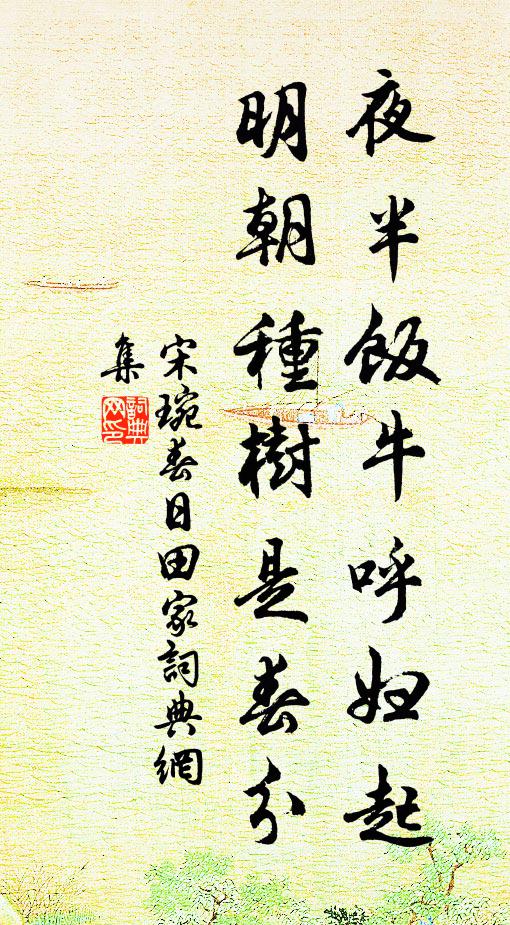 夜半飯牛呼婦起
明朝種樹是春分
宋琬春日田家詞典網
集
詞典網印